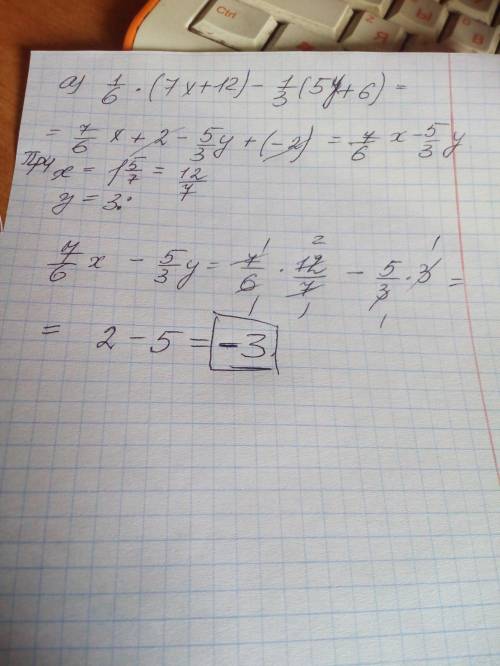 Ctrl
Ы
Я
В
а) 1/6 · (7x+12) - 1/3 (5y+6) =
= 7/6 x + 2 - 5/3 y + (-2) = 7/6 x - 5/3 y
При x = 1 5/7 = 12/7
y = 3:
7/6 x - 5/3 y = 7/6 · 12/7 - 5/3 · 3 =
= 2 - 5 = -3